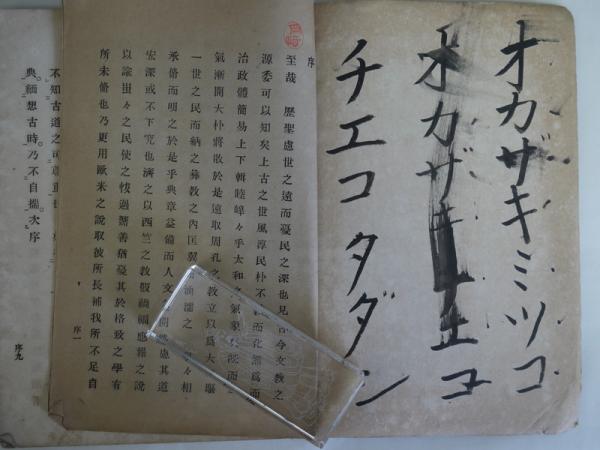 オカザキミツコ
オカザキチエコ
チエコタダシ
序
至哉 歷聖慮世之遠而憂民之深也見
古今文敎之
源委可以知矣上古之世風淳民朴不
而化無爲而
治政體簡易上下輯睦皞々乎太和
氣象
而
氣漸開大朴將散於是遠取周孔之
敎立以爲大
堰
一世之民而納之彝敎之內匡翼
濡之
々相
承脩而明之於是乎典章益備而人文
開
其道
宏深或不下究也濟之以西竺之敎假禍福應報之說
以諭蚩々之民使之悛過勝善猶憂其於格致之學有
所未脩也乃更用歐米之說取彼所長補我所不足自
序一
不知古道之可尊重也
典緬想古時乃不自揣次序
序九